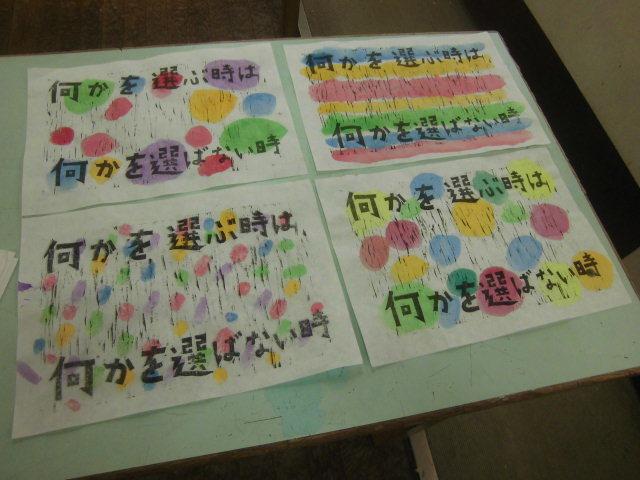 何かを選ぶ時は
何かを選ばない時
何かを選ぶ時は
何かを選ばない時
何かを選ぶ時は
何かを選ばない時
何かを選ぶ時は
何かを選ばない時